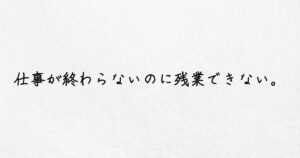 仕事が終わらないのに残業できない。